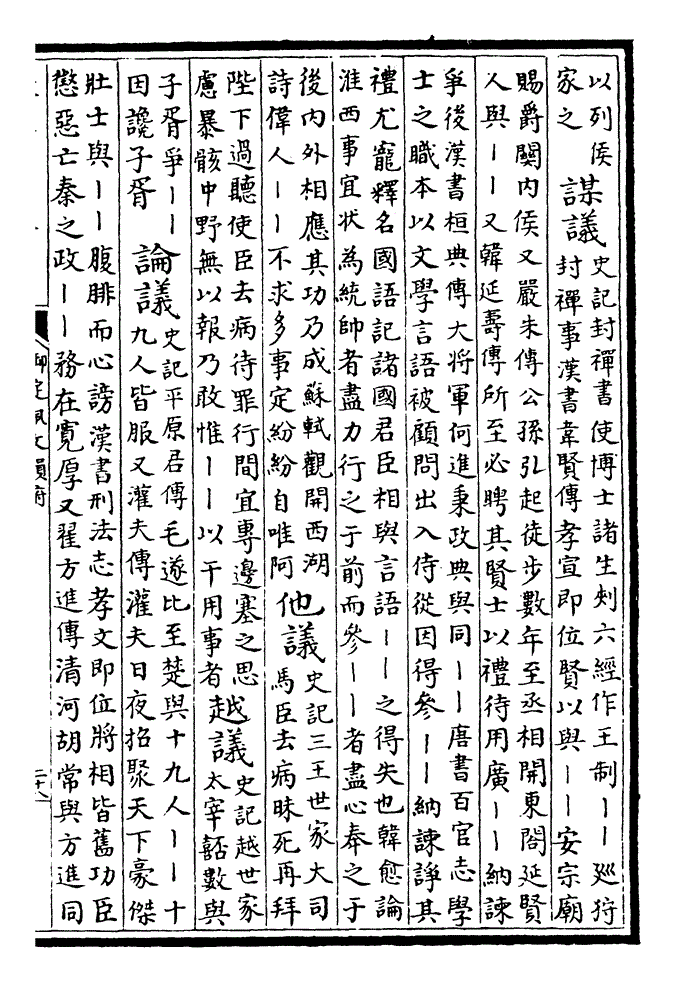 以列侯
家之
謀議
史記封禪書使博士諸生刺六經作王制丨丨廵狩
封禪事漢書韋賢傳孝宣即位賢以與丨丨安宗廟
賜爵關內侯又嚴朱傳公孫弘起徒步數年至丞相開東閤延賢
人與丨丨又韓延壽傳所至必聘其賢士以禮待用廣丨丨納諫
爭後漢書桓典傳大將軍何進秉政典與同丨丨唐書百官志學
士之職本以文學言語被顧問出入侍從因得參丨丨納諫諍其
禮尤寵釋名國語記諸國君臣相與言語丨丨之得失也韓愈論
淮西事宜狀為統帥者盡力行之于前而參丨丨者盡心奉之于
後內外相應其功乃成蘇軾觀開西湖
詩偉人丨丨不求多事定紛紛自唯阿
他議
史記三王世家大司
馬臣去病昧死再拜
陛下過聽使臣去病待罪行間宜專邊塞之思
慮暴骸中野無以報乃敢惟丨丨以干用事者
越議
史記越世家
太宰嚭數與
子胥爭丨丨
因讒子胥
論議
史記平原君傳毛遂比至楚與十九人丨丨十
九人皆服又灌夫傳灌夫日夜招聚天下豪傑
壯士與丨丨腹腓而心謗漢書刑法志孝文即位將相皆舊功臣
懲惡亡秦之政丨丨務在寬厚又翟方進傳清河胡常與方進同
御定佩文韻府